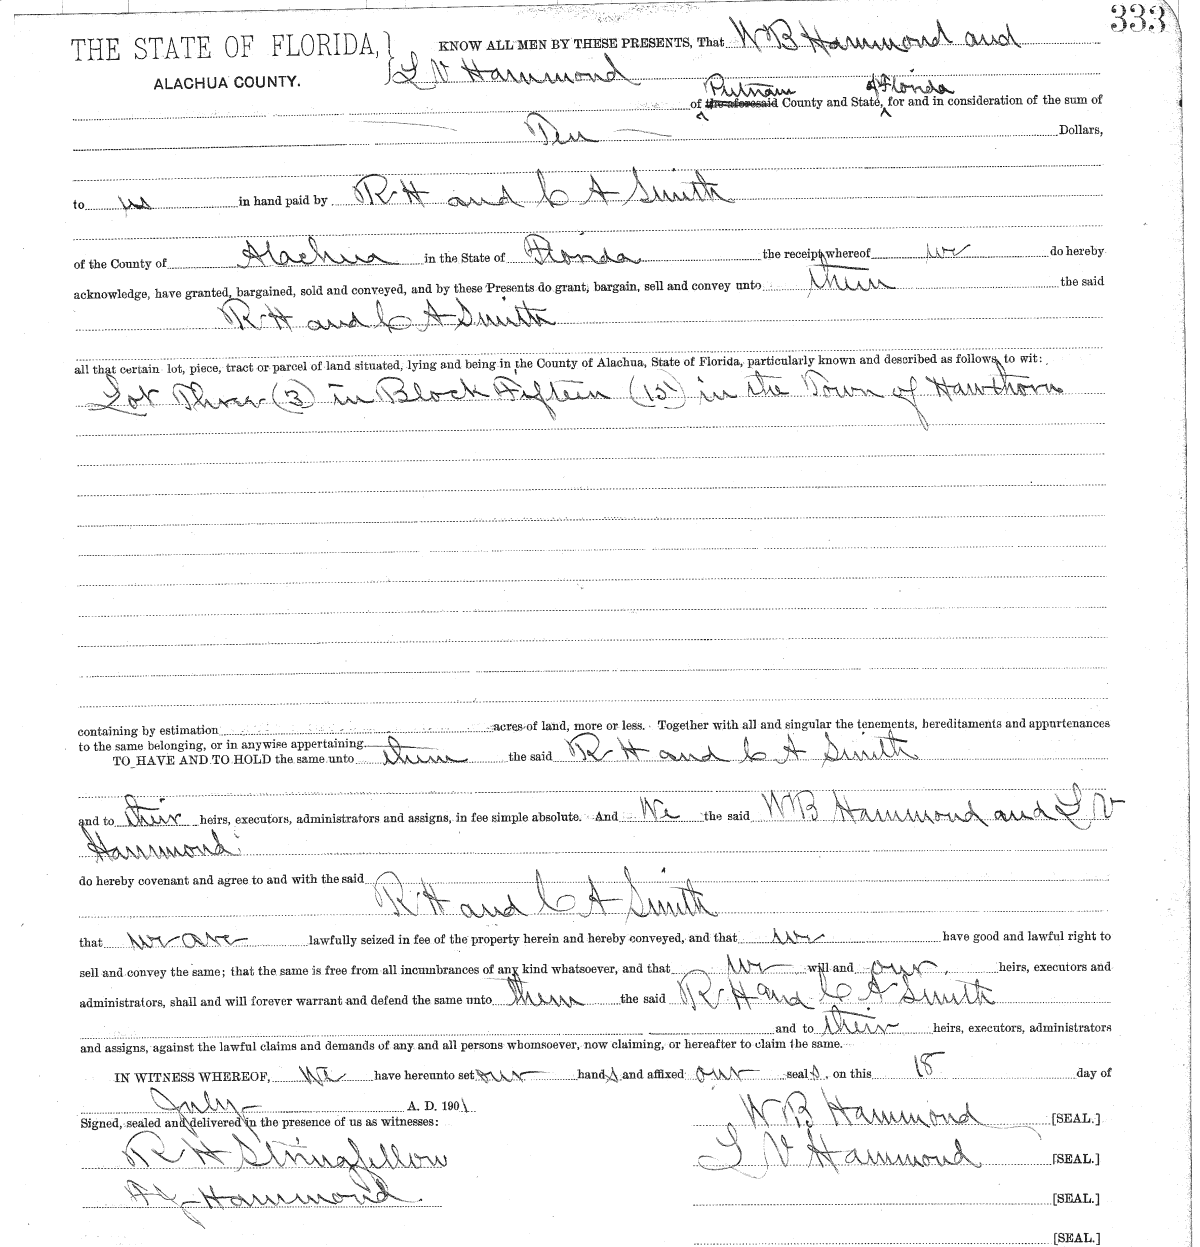 333
THE STATE OF FLORIDA,} KNOW ALL MEN BY THESE PRESENTS, That W B Hammond and
ALACHUA COUNTY. L V Hammond
Putnam of Florida
of the aforesaid County and State, for and in consideration of the sum of
Ten Dollars,
to us in hand paid by R H and C A Smith
of the County of Alachua in the State of Florida the receipt whereof we do hereby
acknowledge, have granted, bargained, sold and conveyed, and by these Presents do grant, bargain, sell and convey unto them the said
R H and C A Smith
all that certain lot, piece, tract or parcel of land situated, lying and being in the County of Alachua, State of Florida, particularly known and described as follows, to wit:
Lot Three (3) in Block Fifteen (15) in the Town of Hawthorn
containing by estimation acres of land, more or less. Together with all and singular the tenements, hereditaments and appurtenances
to the same belonging, or in anywise appertaining.
TO HAVE AND TO HOLD the same unto them the said R H and C A Smith
and to their heirs, executors, administrators and assigns, in fee simple absolute. And We the said W B Hammond and L V
Hammond
do hereby covenant and agree to and with the said
R H and C A Smith
that we are lawfully seized in fee of the property herein and hereby conveyed, and that we have good and lawful right to
sell and convey the same; that the same is free from all incumbrances of any kind whatsoever, and that we will and our heirs, executors and
administrators, shall and will forever warrant and defend the same unto them the said R H and C A Smith
and to their heirs, executors, administrators
and assigns, against the lawful claims and demands of any and all persons whomsoever, now claiming, or hereafter to claim the same.
IN WITNESS WHEREOF, We have hereunto set our hands and affixed our seals, on this 18 day of
July A. D. 1901
Signed, sealed and delivered in the presence of us as witnesses: W B Hammond [SEAL.]
R H Stringfellow L V Hammond [SEAL.]
Hammond [SEAL.]
[SEAL.]